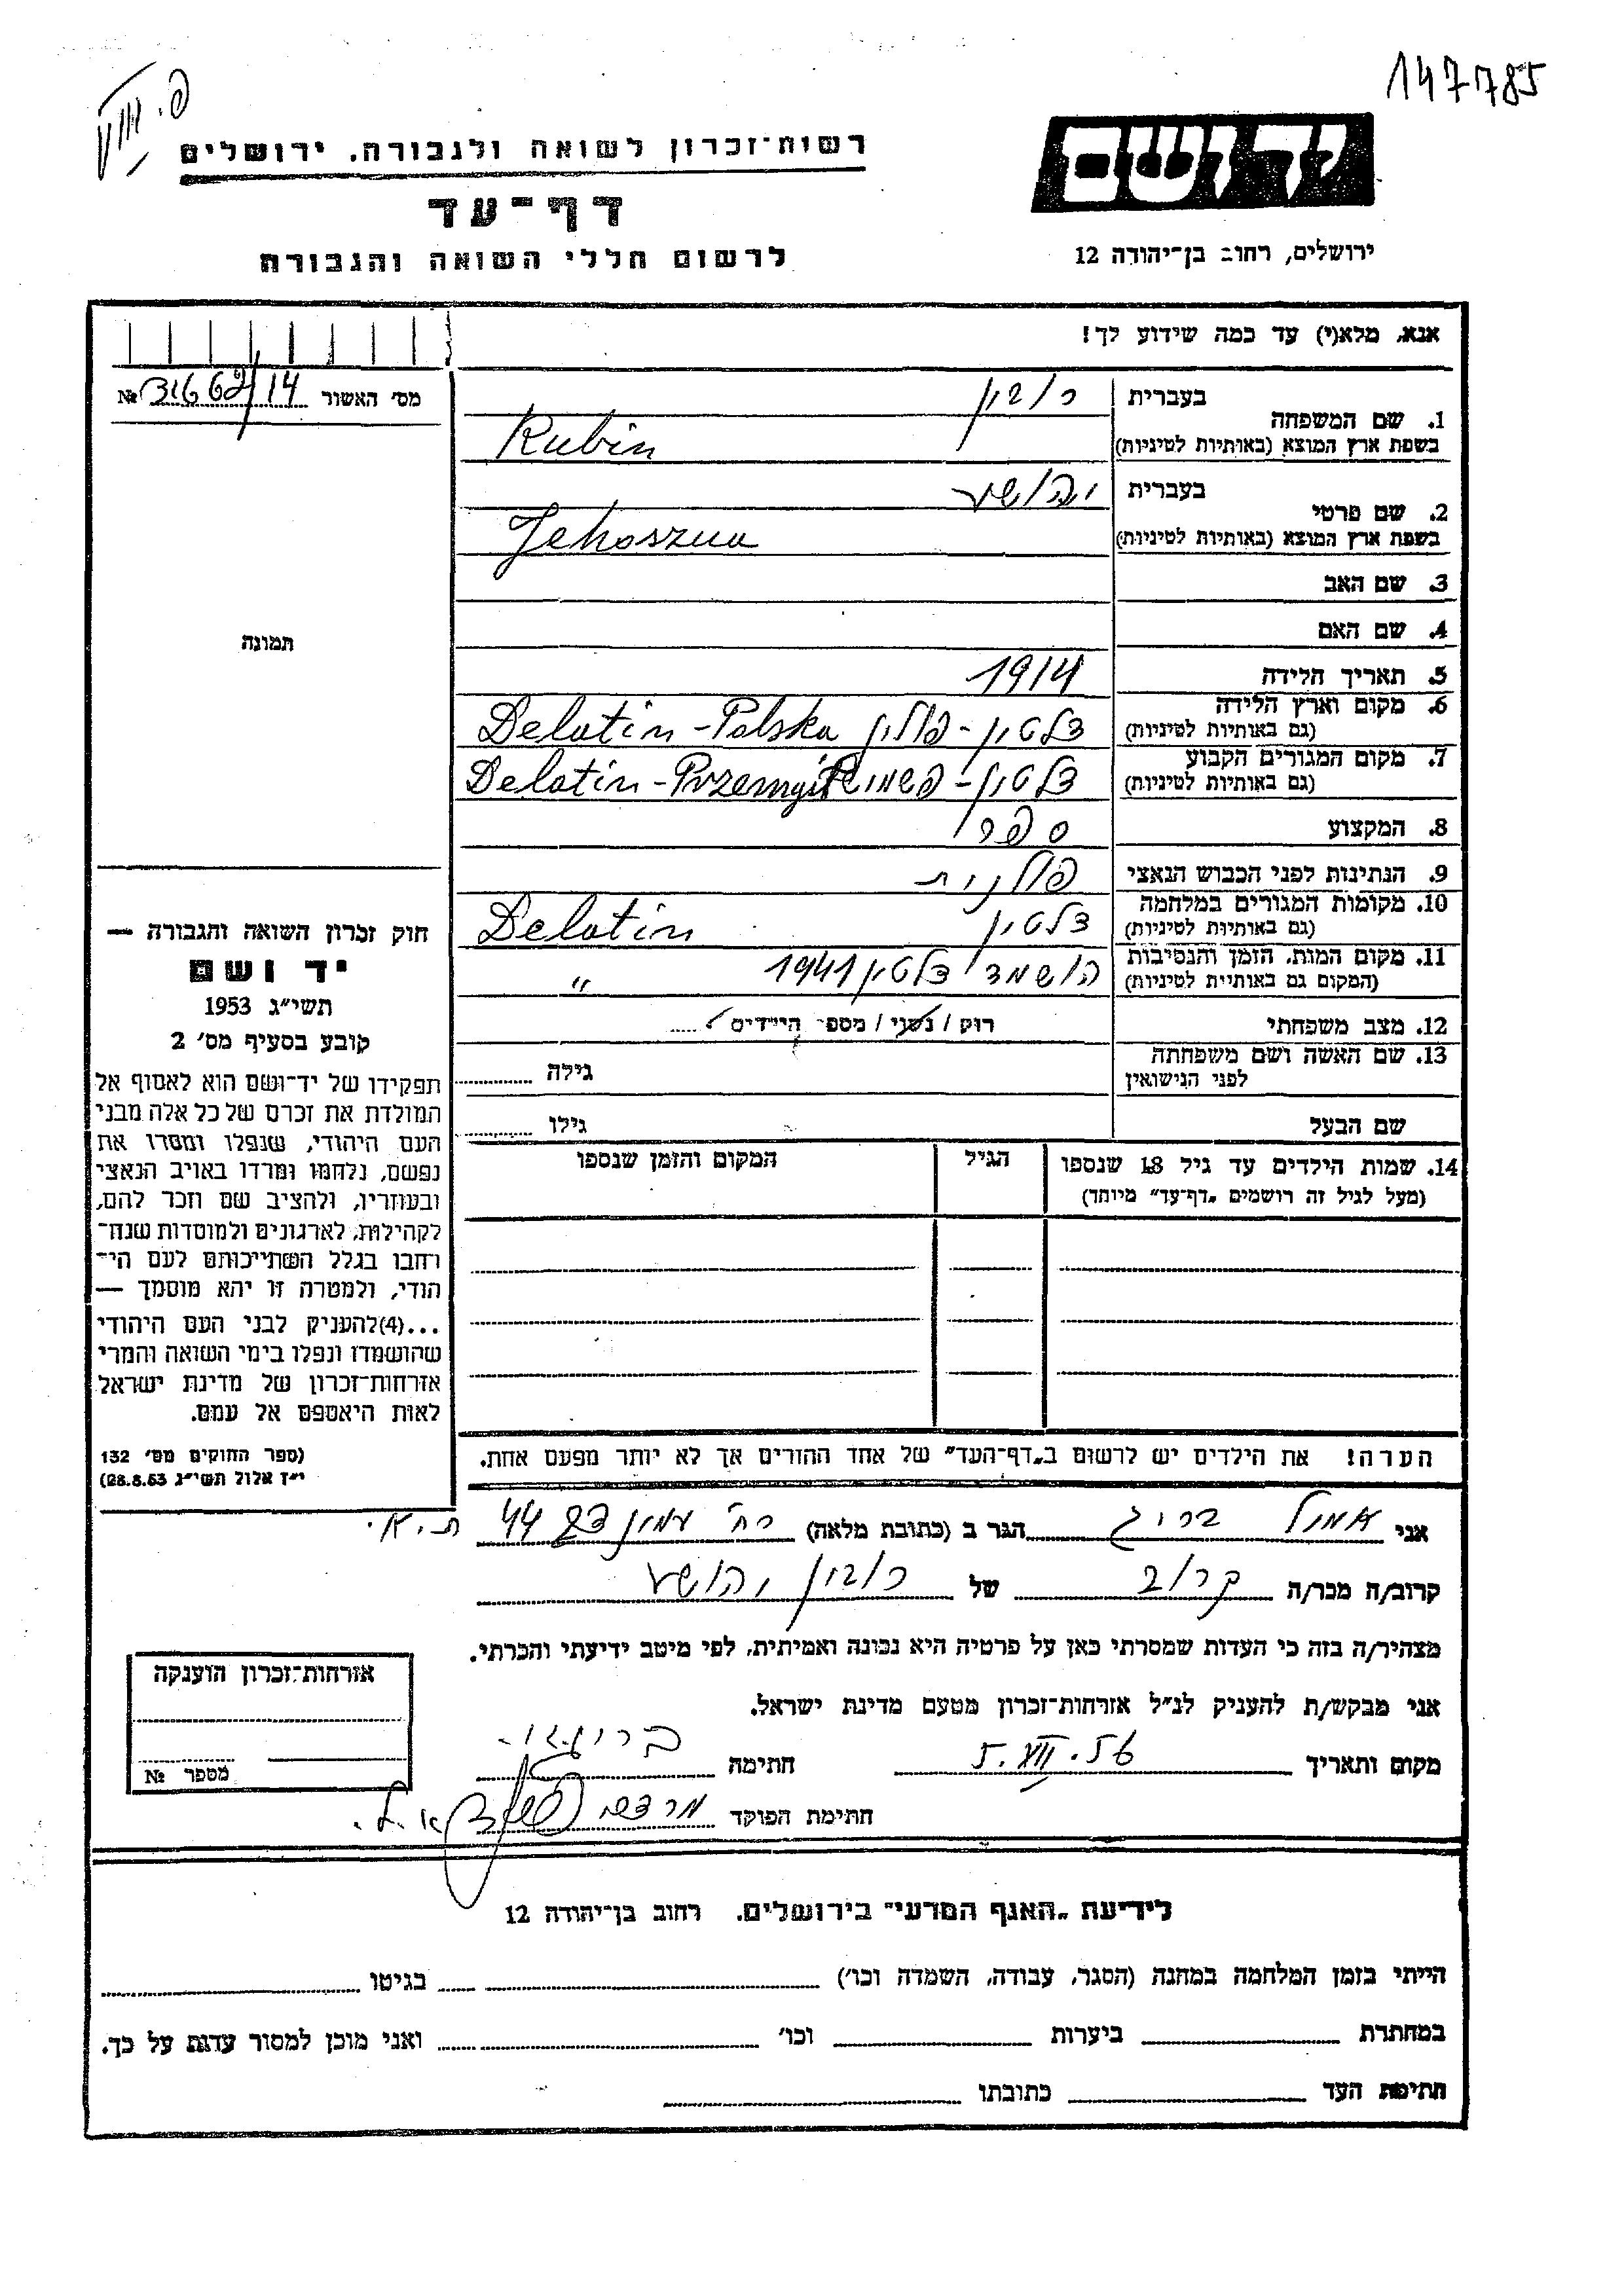 147785
פ. VIII
יד ושם
רשות־זכרון לשואה ולגבורה. ירושלים
דף־עד
לרשום חללי השואה והגבורה
ירושלים, רחוב בן־יהודה 12
אנא, מלא(י) עד כמה שידוע לך!
מס׳ האשור 31662/14 №
1. שם המשפחה
בעברית רובין
בשפת ארץ המוצא (באותיות לטיניות) Rubin
2. שם פרטי
בעברית יהושע
בשפת ארץ המוצא (באותיות לטיניות) Jehoszua
3. שם האב
4. שם האם
תמונה
5. תאריך הלידה 1914
6. מקום וארץ הלידה
(גם באותיות לטיניות) דלטין - פולין Delatin - Polska
7. מקום המגורים הקבוע
(גם באותיות לטיניות) דלטין - Delatin - Przemyśl
8. המקצוע ספר
9. הנתינות לפני הכבוש הנאצי פולנית
10. מקומות המגורים במלחמה
(גם באותיות לטיניות) דלטין Delatin
11. מקום המות, הזמן והנסיבות
(המקום גם באותיות לטיניות) הושמד דלטין 1941 "
12. מצב משפחתי רוק / נשוי / מספר הילדים
13. שם האשה ושם משפחתה
לפני הנישואין גילה
שם הבעל גילו
14. שמות הילדים עד גיל 18 שנספו הגיל המקום והזמן שנספו
(מעל לגיל זה רושמים „דף־עד״ מיוחד)
חוק זכרון השואה והגבורה —
יד ושם
תשי״ג 1953
קובע בסעיף מס׳ 2
תפקידו של יד־ושם הוא לאסוף אל
המולדת את זכרם של כל אלה מבני
העם היהודי, שנפלו ומסרו את
נפשם, נלחמו ומרדו באויב הנאצי
ובעוזריו, ולהציב שם וזכר להם,
לקהילות, לארגונים ולמוסדות שנח־
רחבו בגלל השתייכותם לעם הי־
הודי, ולמטרה זו יהא מוסמך —
...(4)להעניק לבני העם היהודי
שהושמדו ונפלו בימי השואה והמרי
אזרחות־זכרון של מדינת ישראל
לאות היאספם אל עמם.
(ספר החוקים מס׳ 132
י״ז אלול תשי״ג 28.8.53)
הערה! את הילדים יש לרשום ב„דף־העד״ של אחד ההורים אך לא יותר מפעם אחת.
אני אמול בריג הגר ב (כתובת מלאה) רח׳ 44 ת.א.
קרוב/ה מכר/ה קרוב של רובין יהושע
מצהיר/ה בזה כי העדות שמסרתי כאן על פרטיה היא נכונה ואמיתית, לפי מיטב ידיעתי והכרתי.
אני מבקש/ת להעניק לנ״ל אזרחות־זכרון מטעם מדינת ישראל.
מקום ותאריך 5.VIII.56 חתימה
חתימת הפוקד
אזרחות־זכרון הוענקה
מספר №
לידיעת „האגף המדעי״ בירושלים. רחוב בן־יהודה 12
הייתי בזמן המלחמה במחנה (הסגר, עבודה, השמדה וכו׳) בגיטו
במחתרת ביערות וכו׳ ואני מוכן למסור עדות על כך.
חתימת העד כתובתו